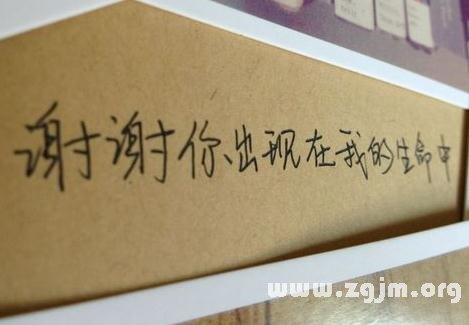 谢谢你出现在我的生命中
www.zgjm.org